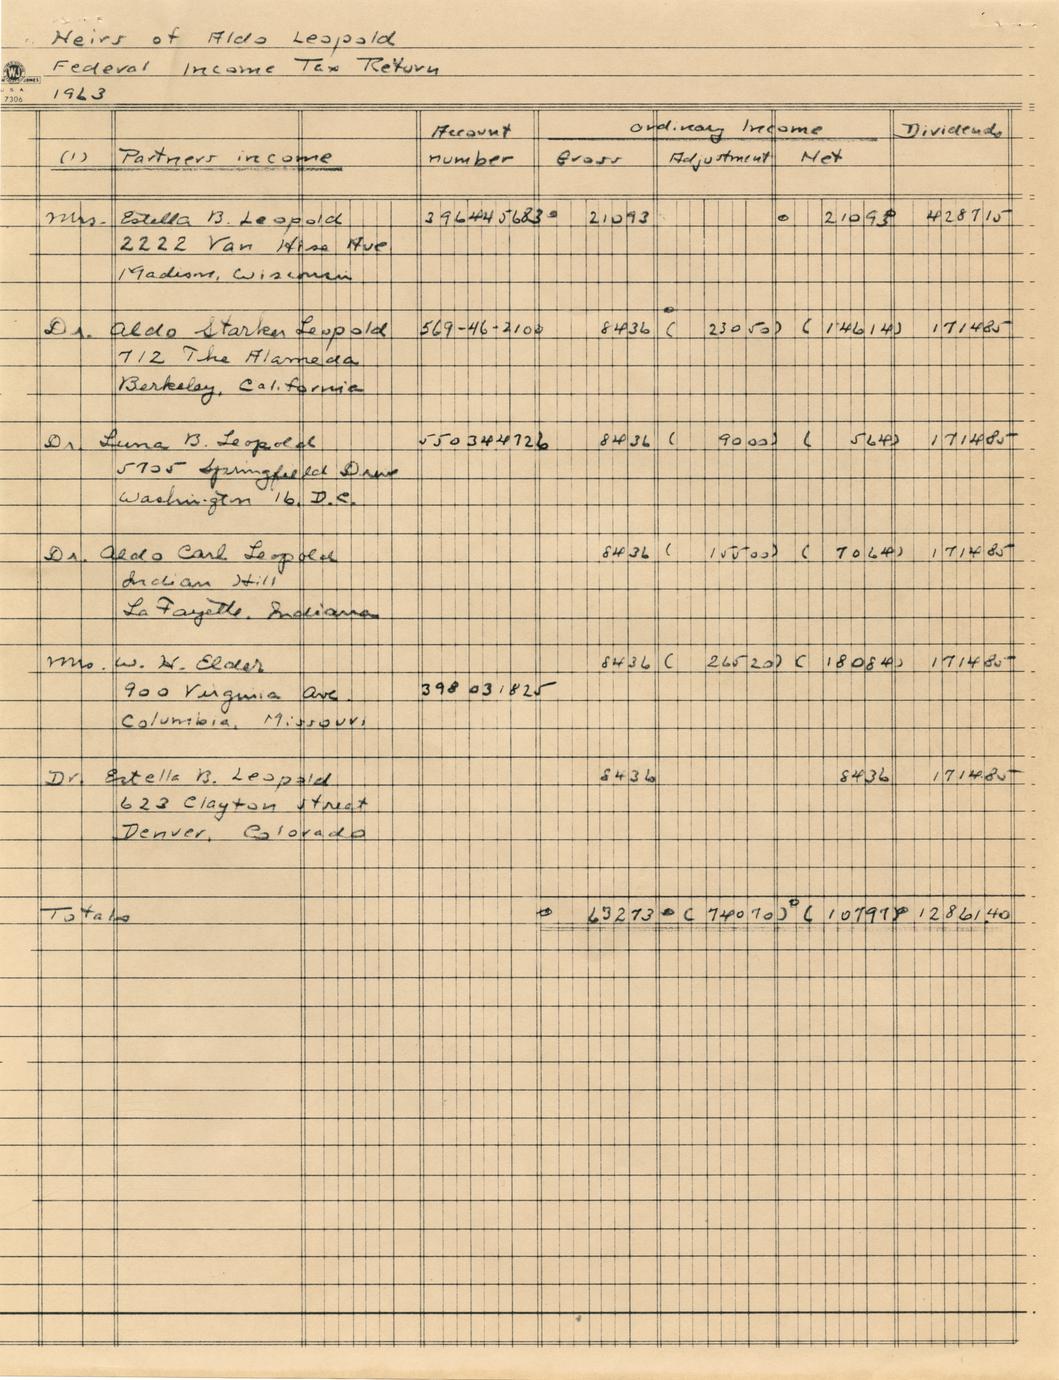 Heirs of Aldo Leopold
Federal Income Tax Return
1963
WJ
JONES
U S A
7306
Account Ordinary Income Dividends
(1) Partners income number Gross Adjustment Net
Mrs. Estella B. Leopold 3964445683 21093 21093 428715
2222 Van Hise Ave
Madison, Wisconsin
Dr. Aldo Starker Leopold 569-46-2100 8436 ( 23050) ( 14614) 171485
712 The Alameda
Berkeley, California
Dr. Luna B. Leopold 550344726 8436 ( 9000) ( 564) 171485
5705 Springfield Drive
Washington 16, D.C.
Dr. Aldo Carl Leopold 8436 ( 15500) ( 7064) 171485
Indian Hill
La Fayette, Indiana
Mrs. W. H. Elder 8436 ( 26520) ( 18084) 171485
900 Virginia Ave. 398 031825
Columbia, Missouri
Dr. Estella B. Leopold 8436 8436 171485
623 Clayton Street
Denver, Colorado
Totals 63273 ( 74070) ( 10797) 1286140